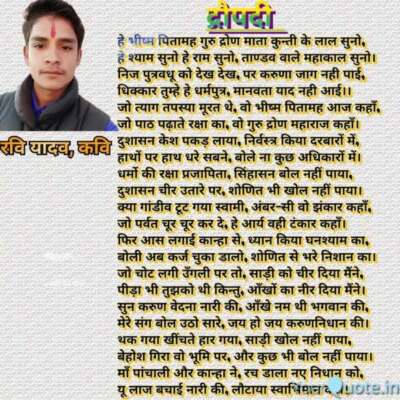 द्रौपदी
हे भीष्म पितामह गुरु द्रोण माता कुन्ती के लाल सुनो,
हे श्याम सुनो हे राम सुनो, ताण्डव वाले महाकाल सुनो।
निज पुत्रवधू को देख देख, पर करुणा जाग नही पाई,
धिक्कार तुम्हे हे धर्मपुत्र, मानवता याद नही आई।।
जो त्याग तपस्या मूरत थे, वो भीष्म पितामह आज कहाँ,
जो पाठ पढ़ाते रक्षा का, वो गुरु द्रोण महाराज कहाँ।
दुशासन केश पकड़ लाया, निर्वस्त्र किया दरबारों में,
हाथों पर हाथ धरे सबने, बोले ना कुछ अधिकारों में।
धर्मो की रक्षा प्रजापिता, सिंहासन बोल नहीं पाया,
दुशासन चीर उतारे पर, शोणित भी खोल नहीं पाया।
क्या गांडीव टूट गया स्वामी, अंबर-सी वो झंकार कहाँ,
जो पर्वत चूर चूर कर दे, हे आर्य वही टंकार कहाँ।
फिर आस लगाई कान्हा से, ध्यान किया घनश्याम का,
बोली अब कर्ज चुका डालो, शोणित से भरे निशान का।
जो चोट लगी उँगली पर तो, साड़ी को चीर दिया मैंने,
पीड़ा भी तुझको थी किन्तु, आँखों का नीर दिया मैंने।
सुन करुण वेदना नारी की, आँखे नम थी भगवान की,
मेरे संग बोल उठो सारे, जय हो जय करुणनिधान की।
थक गया खींचते हार गया, साड़ी खोल नहीं पाया,
बेहोश गिरा वो भूमि पर, और कुछ भी बोल नहीं पाया।
माँ पांचाली और कान्हा ने, रच डाला नए निधान को,
यू लाज बचाई नारी की, लौटाया स्वाभिमान
रवि यादव, कवि